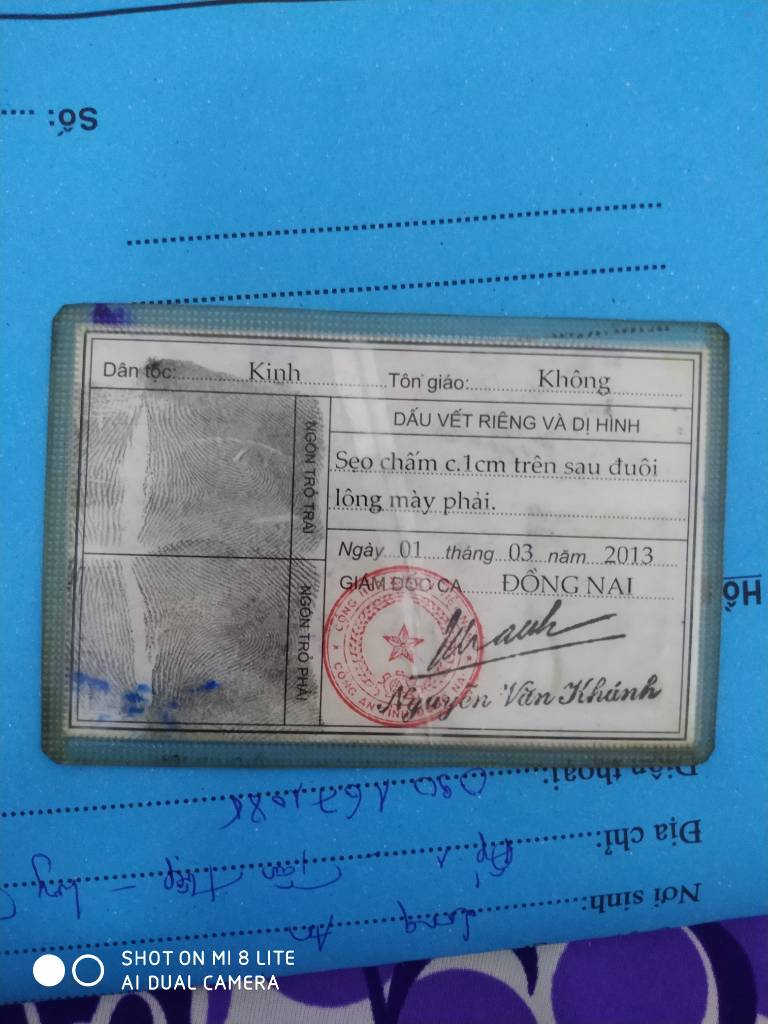 Số:
Dân tộc: Kinh Tôn giáo: Không
NGÓN TRỎ TRÁI
NGÓN TRỎ PHẢI
DẤU VẾT RIÊNG VÀ DỊ HÌNH
Sẹo chấm c.1cm trên sau đuôi
lông mày phải.
Ngày 01 tháng 03 năm 2013
GIÁM ĐỐC CA ĐỒNG NAI
Khanh
Nguyễn Văn Khánh
HỒ
Điện thoại:
Địa chỉ: Ấp 1
Nơi sinh: Long An
SHOT ON MI 8 LITE
AI DUAL CAMERA